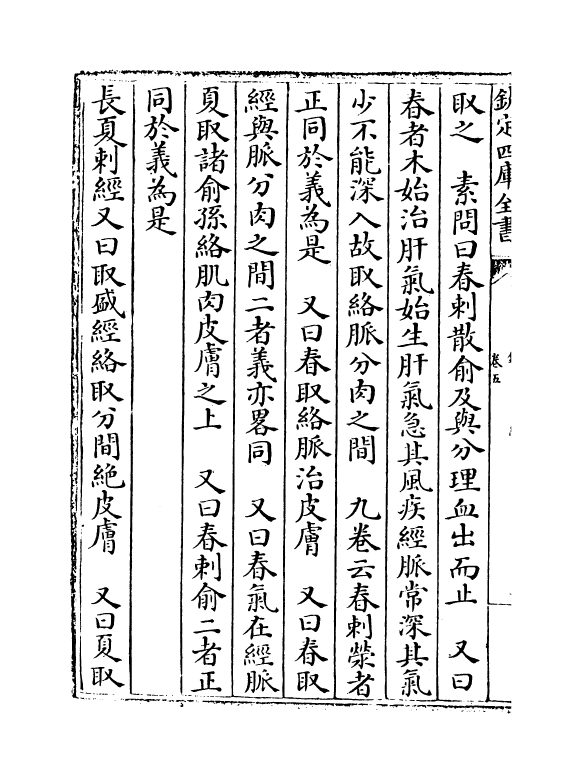 欽定四庫全書
卷五
取之　素問曰春刺散俞及與分理血出而止　又曰
春者木始治肝氣始生肝氣急其風疾經脈常深其氣
少不能深入故取絡脈分肉之間　九卷云春刺滎者
正同於義為是　又曰春取絡脈治皮膚　又曰春取
經與脈分肉之間二者義亦畧同　又曰春氣在經脈
夏取諸俞孫絡肌肉皮膚之上　又曰春刺俞二者正
同於義為是
長夏刺經又曰取盛經絡取分間絶皮膚　又曰夏取